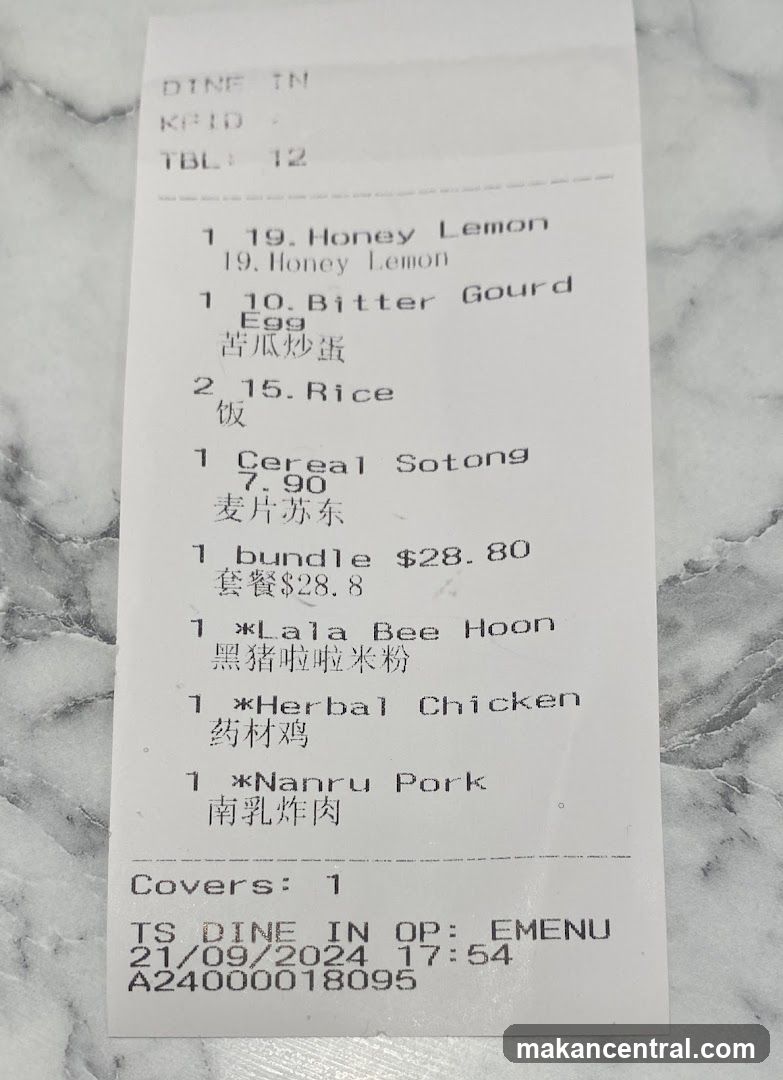 DINE IN
KPID -
TBL: 12
1 19.Honey Lemon
19.Honey Lemon
1 10.Bitter Gourd
Egg
苦瓜炒蛋
2 15.Rice
饭
1 Cereal Sotong
7.90
麦片苏东
1 bundle $28.80
套餐$28.8
1 *Lala Bee Hoon
黑猪啦啦米粉
1 *Herbal Chicken
药材鸡
1 *Nanru Pork
南乳炸肉
Covers: 1
TS DINE IN OP: EMENU
21/09/2024 17:54
A24000018095
makancentral.com